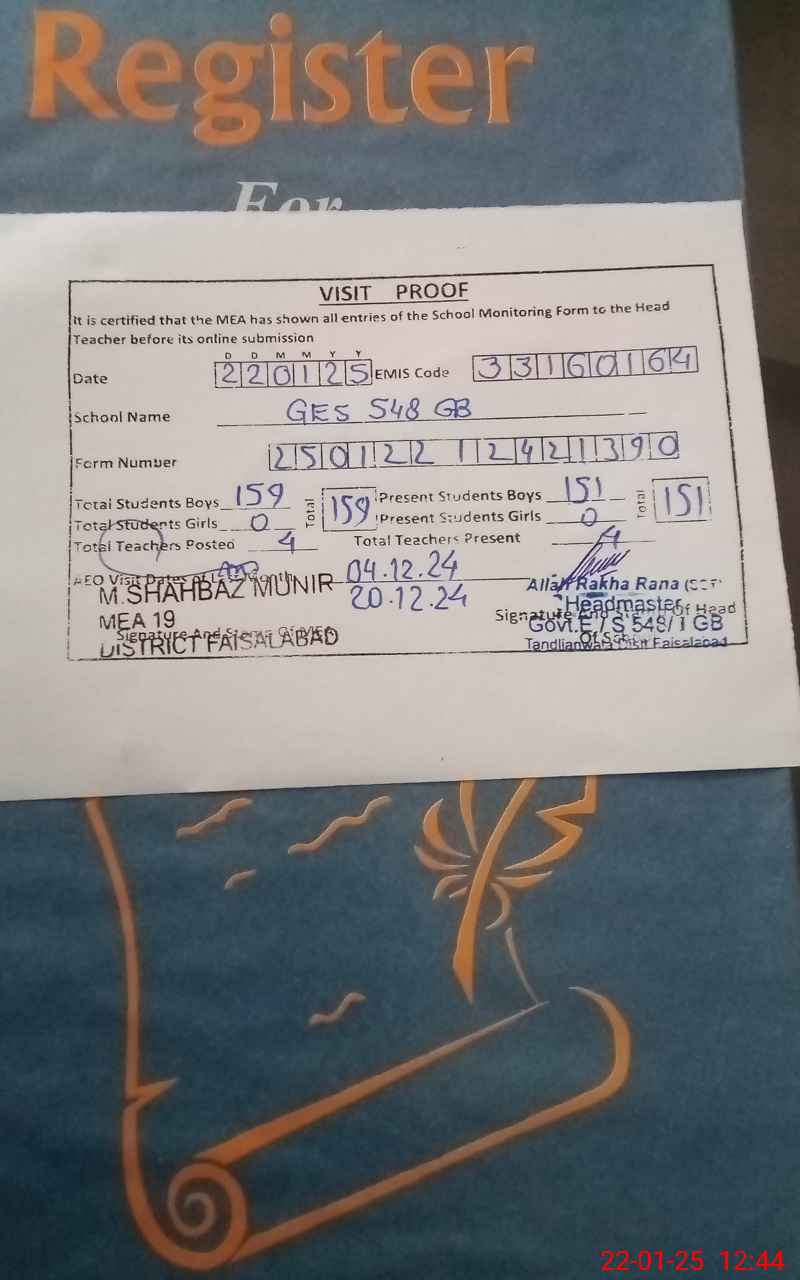 Register
For
VISIT PROOF
It is certified that the MEA has shown all entries of the School Monitoring Form to the Head
Teacher before its online submission
D D M M Y Y
Date 220125 EMIS Code 33160164
School Name GES 548 GB
Form Number 250122 12421390
Total Students Boys 159 Total 159 Present Students Boys 151 Total 151
Total Students Girls 0 Present Students Girls 0
Total Teachers Posted 4 Total Teachers Present 4
AEO Visit Dates of Last Month 04.12.24
20.12.24
M.SHAHBAZ MUNIR
MEA 19
Signature And Stamp Of MEA
DISTRICT FAISALABAD
Allah Rakha Rana
Headmaster
Signature And Stamp Of Head
Govt.E / S 548/ GB
Tandlianwala Distt Faisalabad
22-01-25 12:44